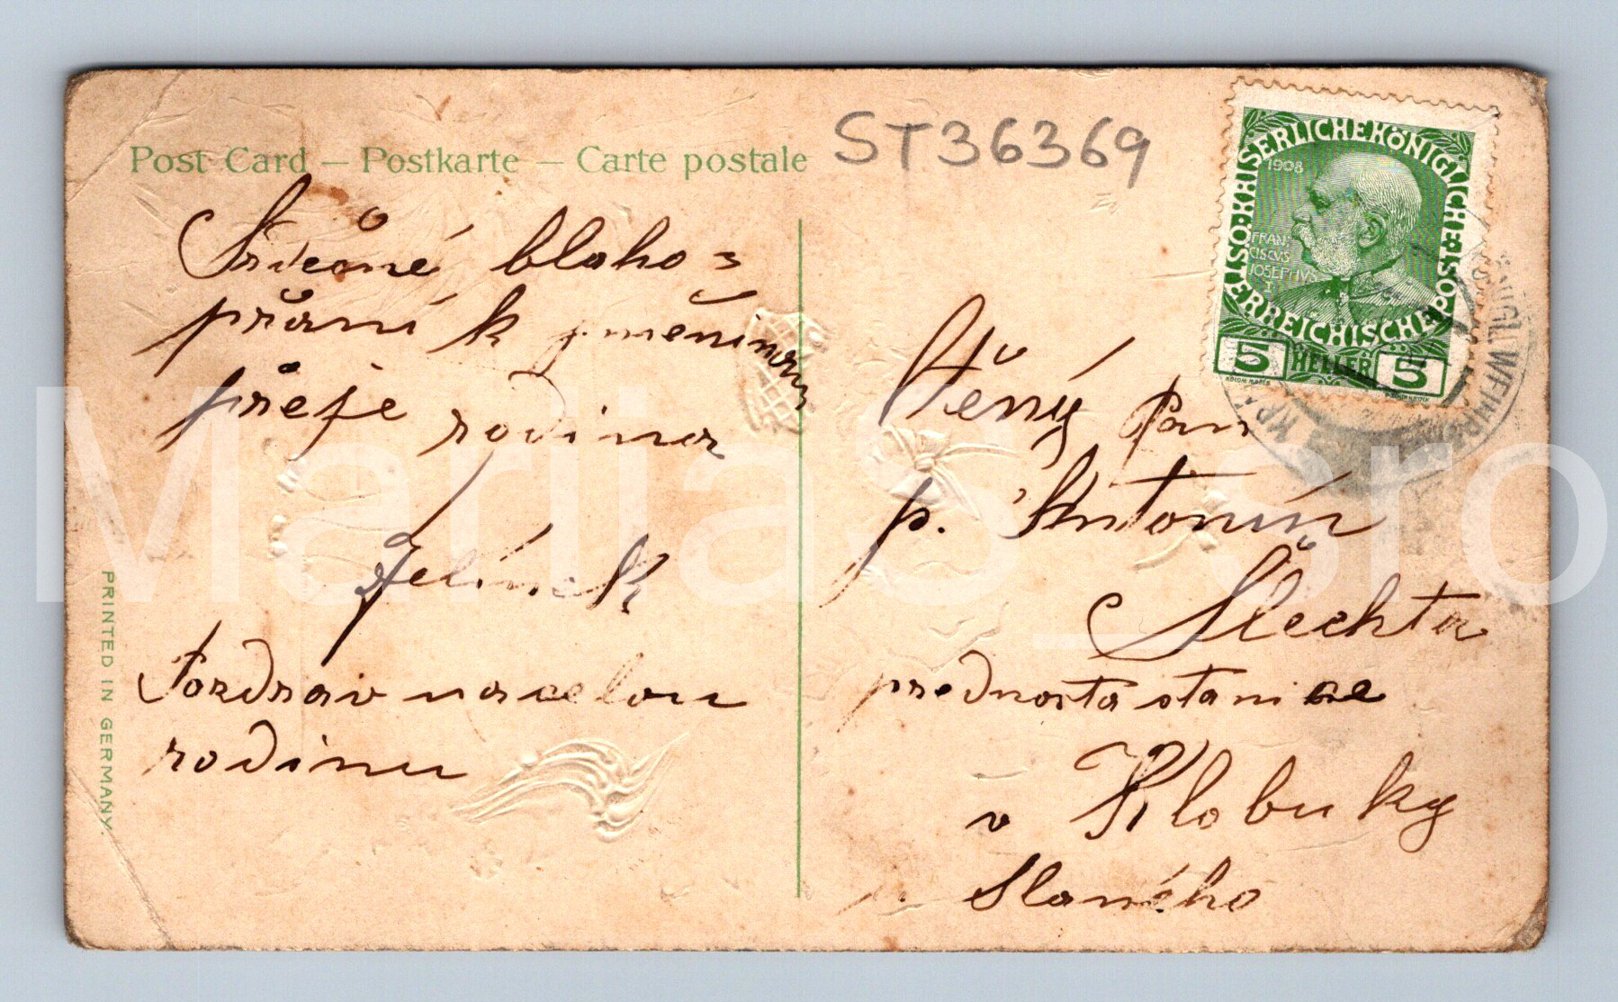 Post Card — Postkarte — Carte postale
ST36369
Srdečné blaho-
přání k jmeninam
přeje rodina
Jelínek
Pozdrav na celou
rodinu
PRINTED IN GERMANY
KAISERLICHE KÖNIGLICHE
ÖSTERREICHISCHE POST
1908
FRAN
CISCVS
JOSEPHVS
I
5 HELLER 5
KGL. WEINB
Ctěný Pan
p. Antonín
Šlechta
prednosta stanice
v Klobuky
Slaného
MarijaS_sro